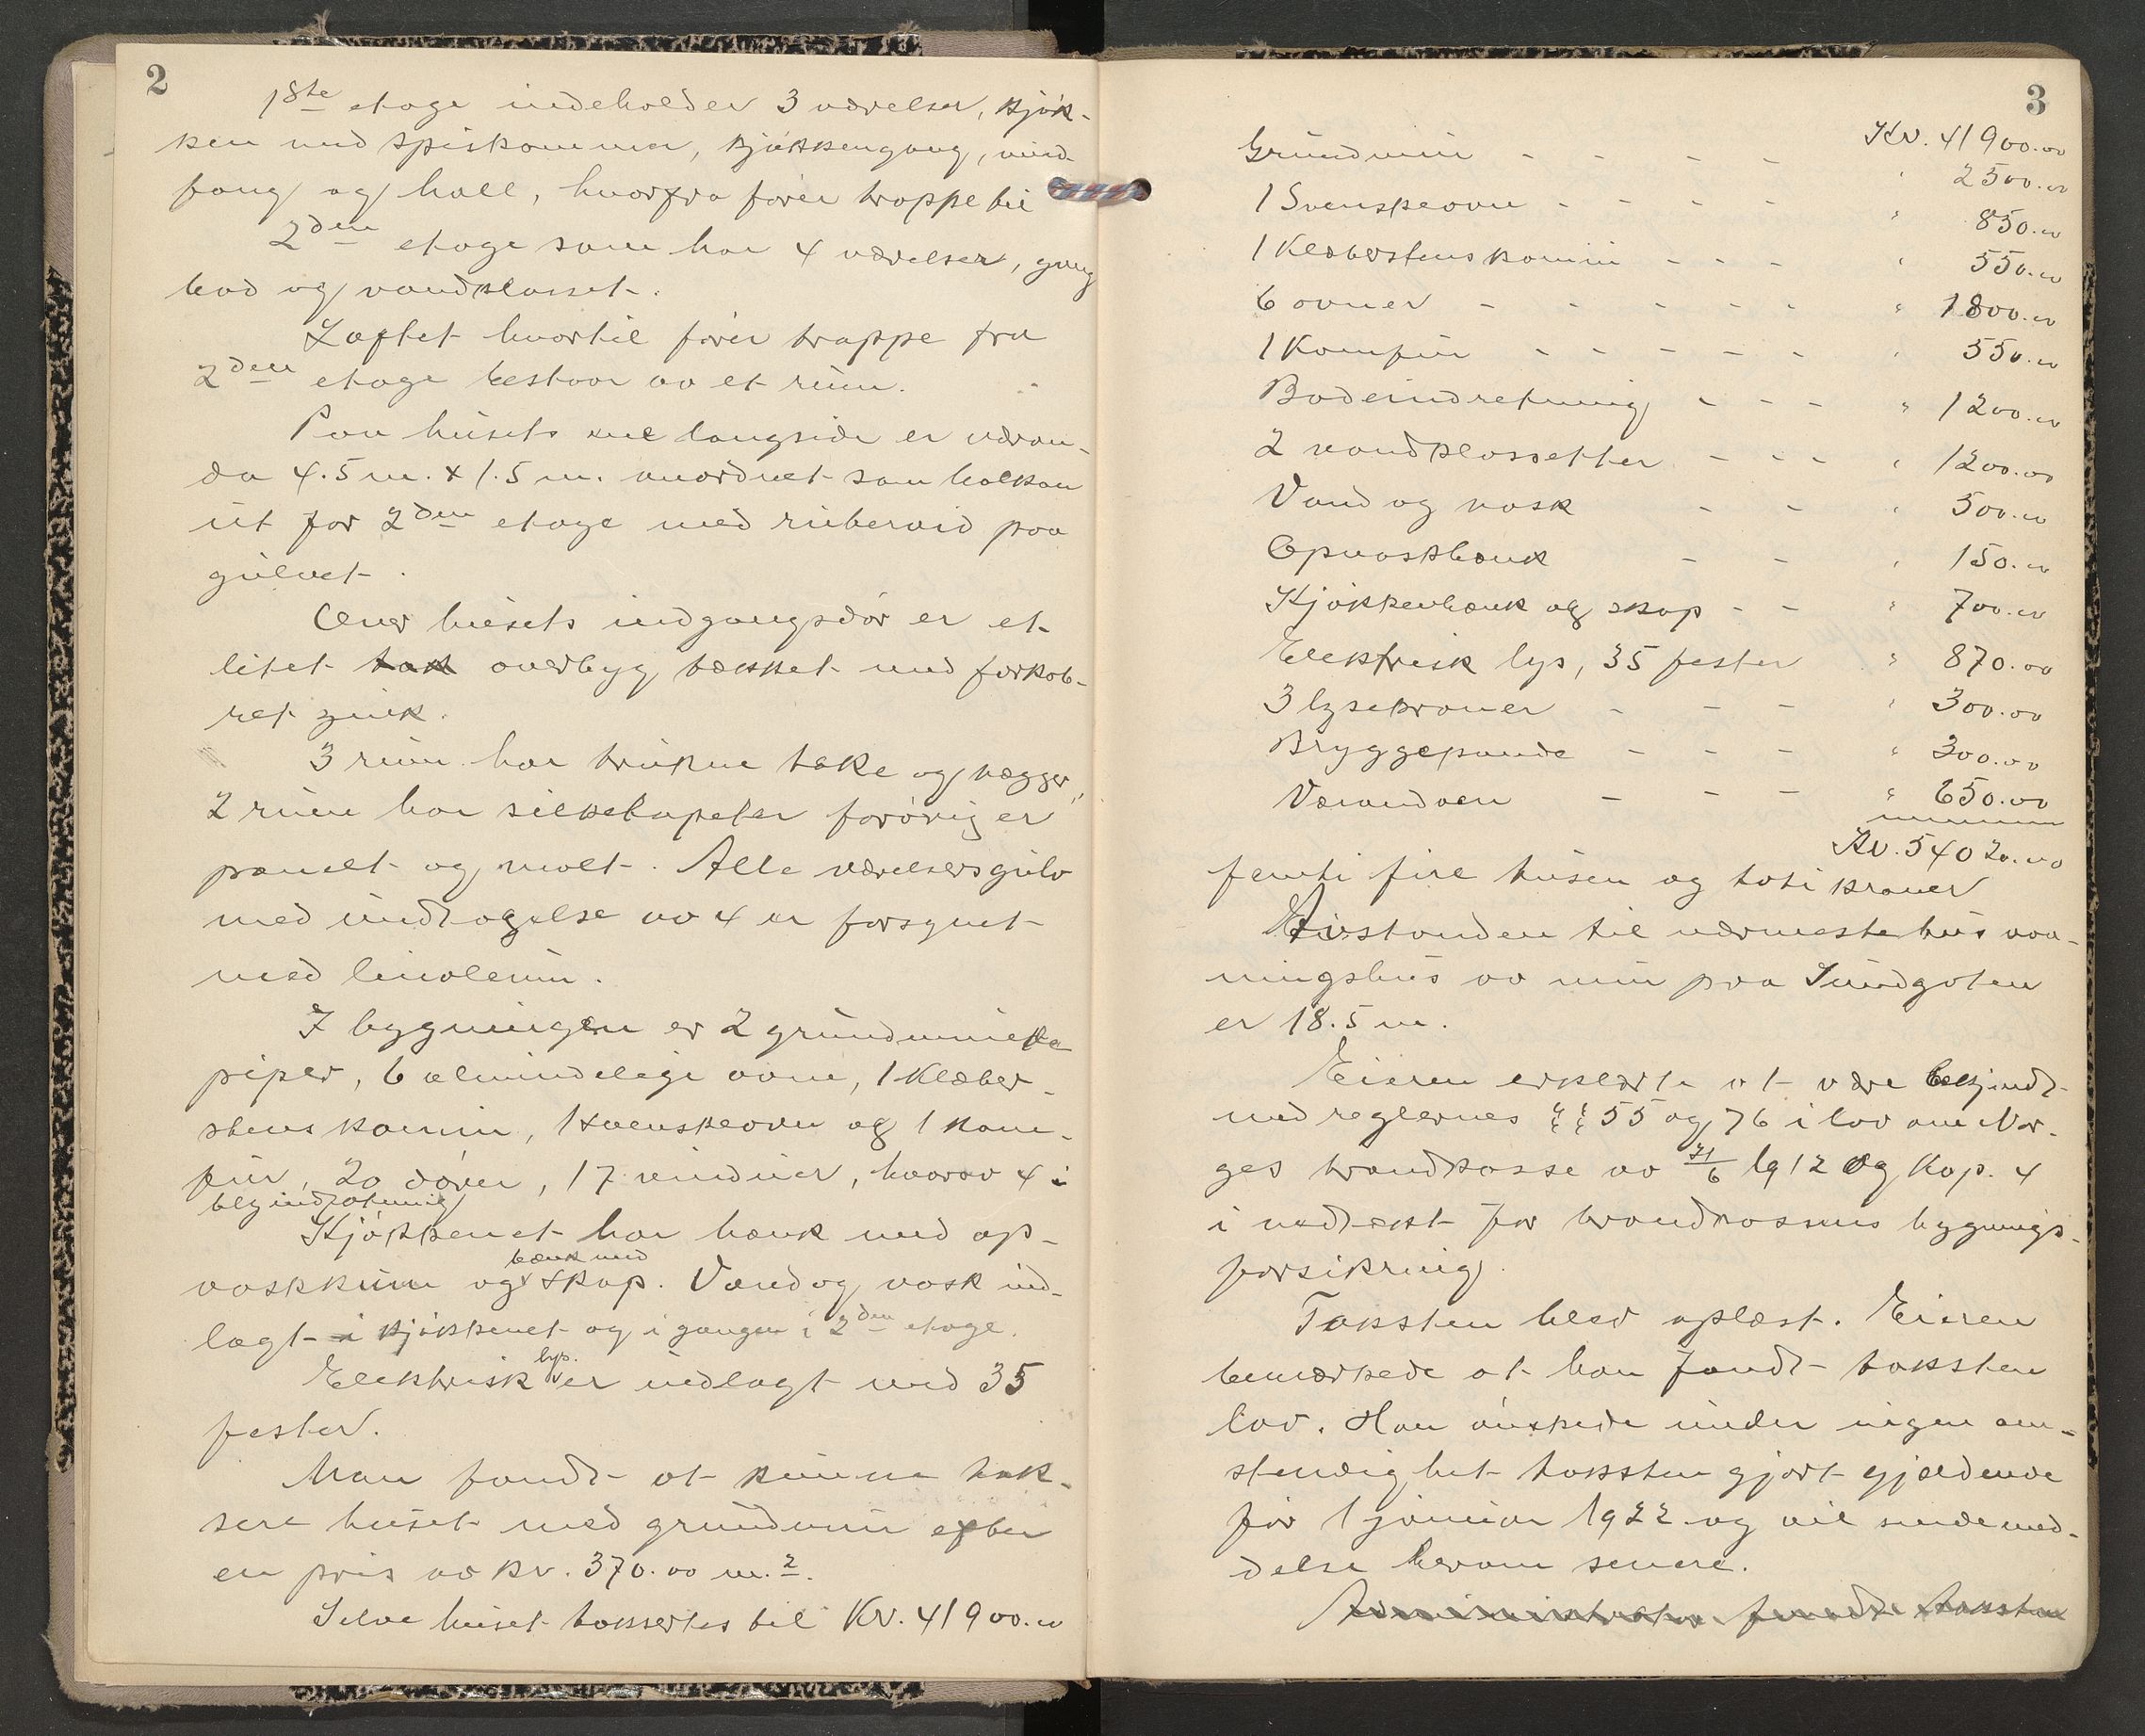 2
1ste etage indeholder 3 værelser, kjøk-
ken med spiskammer, kjøkkengang, vind-
fang og hall, hvorfra fører trappe til
2den etage som har 4 værelser, gang
bad og vandklosset.
Loftet hvortil fører trappe fra
2den etage bestaar av et rum.
Paa husets ene langside er veran-
da 4.5 m. x 1.5 m. anordnet som balkon
ut for 2den etage med ruberoid paa
gulvet.
Over husets indgangsdør er et
litet tak overbyg tækket med forkob-
ret zink.
3 rum har trukne take og vægger,
2 rum har silketapeter forøvrig er
panelt og malt. Alle værelsersgulv
med undtagelse av 4 er forsynet
med linoleum.
I bygningen er 2 grundmurte
piper, 6 almindelige ovne, 1 Klæber-
stens kamin, 1 svenskeovn og 1 kom-
fur, 20 dører, 17 vinduer, hvorav 4 i
blyindfatning
Kjøkkenet har bænk med op-
vaskkum og bænk med skap. Vand og vask ind-
lagt i kjøkkenet og i gangen i 2den etage.
Elektrisk lys er indlagt med 35
fester.
Man fandt at kunne tak-
sere huset med grundmur efter
en pris av kr. 370.00 m.2.
Selve huset taksertes til Kr. 41900.00
3
Kr. 41900.00
Grundmur - - - - " 2500.00
1 Svenskeovn - - - - " 850.00
1 Klæberstens kamin - - - " 550.00
6 ovner - - - - - " 1800.00
1 Komfur - - - - - " 550.00
Badeindretning - - - " 1200.00
2 vandklossetter - - - " 1200.00
Vand og vask - - " 500.00
Opvaskbænk - - " 150.00
Kjøkkenbænk og skap - - " 700.00
Elektrisk lys, 35 fester " 870.00
3 lysekroner - - - " 300.00
Bryggepande - - - " 300.00
Verandaen - - - " 650.00
Kr. 54020.00
femti fire tusen og toti kroner
Avstanden til nærmeste hus vaa-
ningshus av mur paa Sundgoten
er 18.5 m.
Eieren erklærte at være bekjendt
med reglernes §§ 55 og 76 i lov om Nor-
ges brandkasse av 21/6 1912 og Kap. 4
i vedtækt for brandkassens bygnings-
forsikring.
Taksten blev oplæst. Eieren
bemærkede at han fandt taksten
lav. Han ønskede under ingen om-
stendighet taksten gjort gjældende
før 1 januar 1922 og vil sende med-
delse herom senere.
Administrator fandt taksten